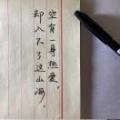 空有一身热爱，
却入不了这山海。